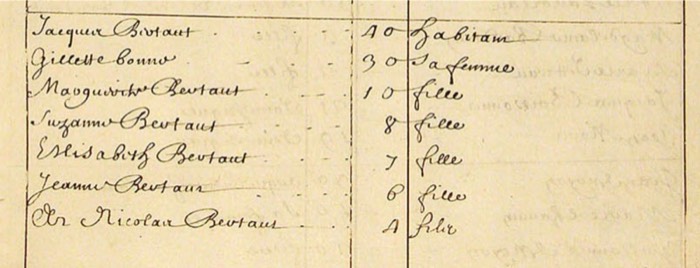 Jacques Bertaut 40 habitant
Gillette bonne 30 sa femme
Marguerite Bertaut 10 fille
Suzanne Bertaut 8 fille
Ellisabeth Bertaut 7 fille
Jeanne Bertaut 6 fille
Nicolas Bertaut 4 filz